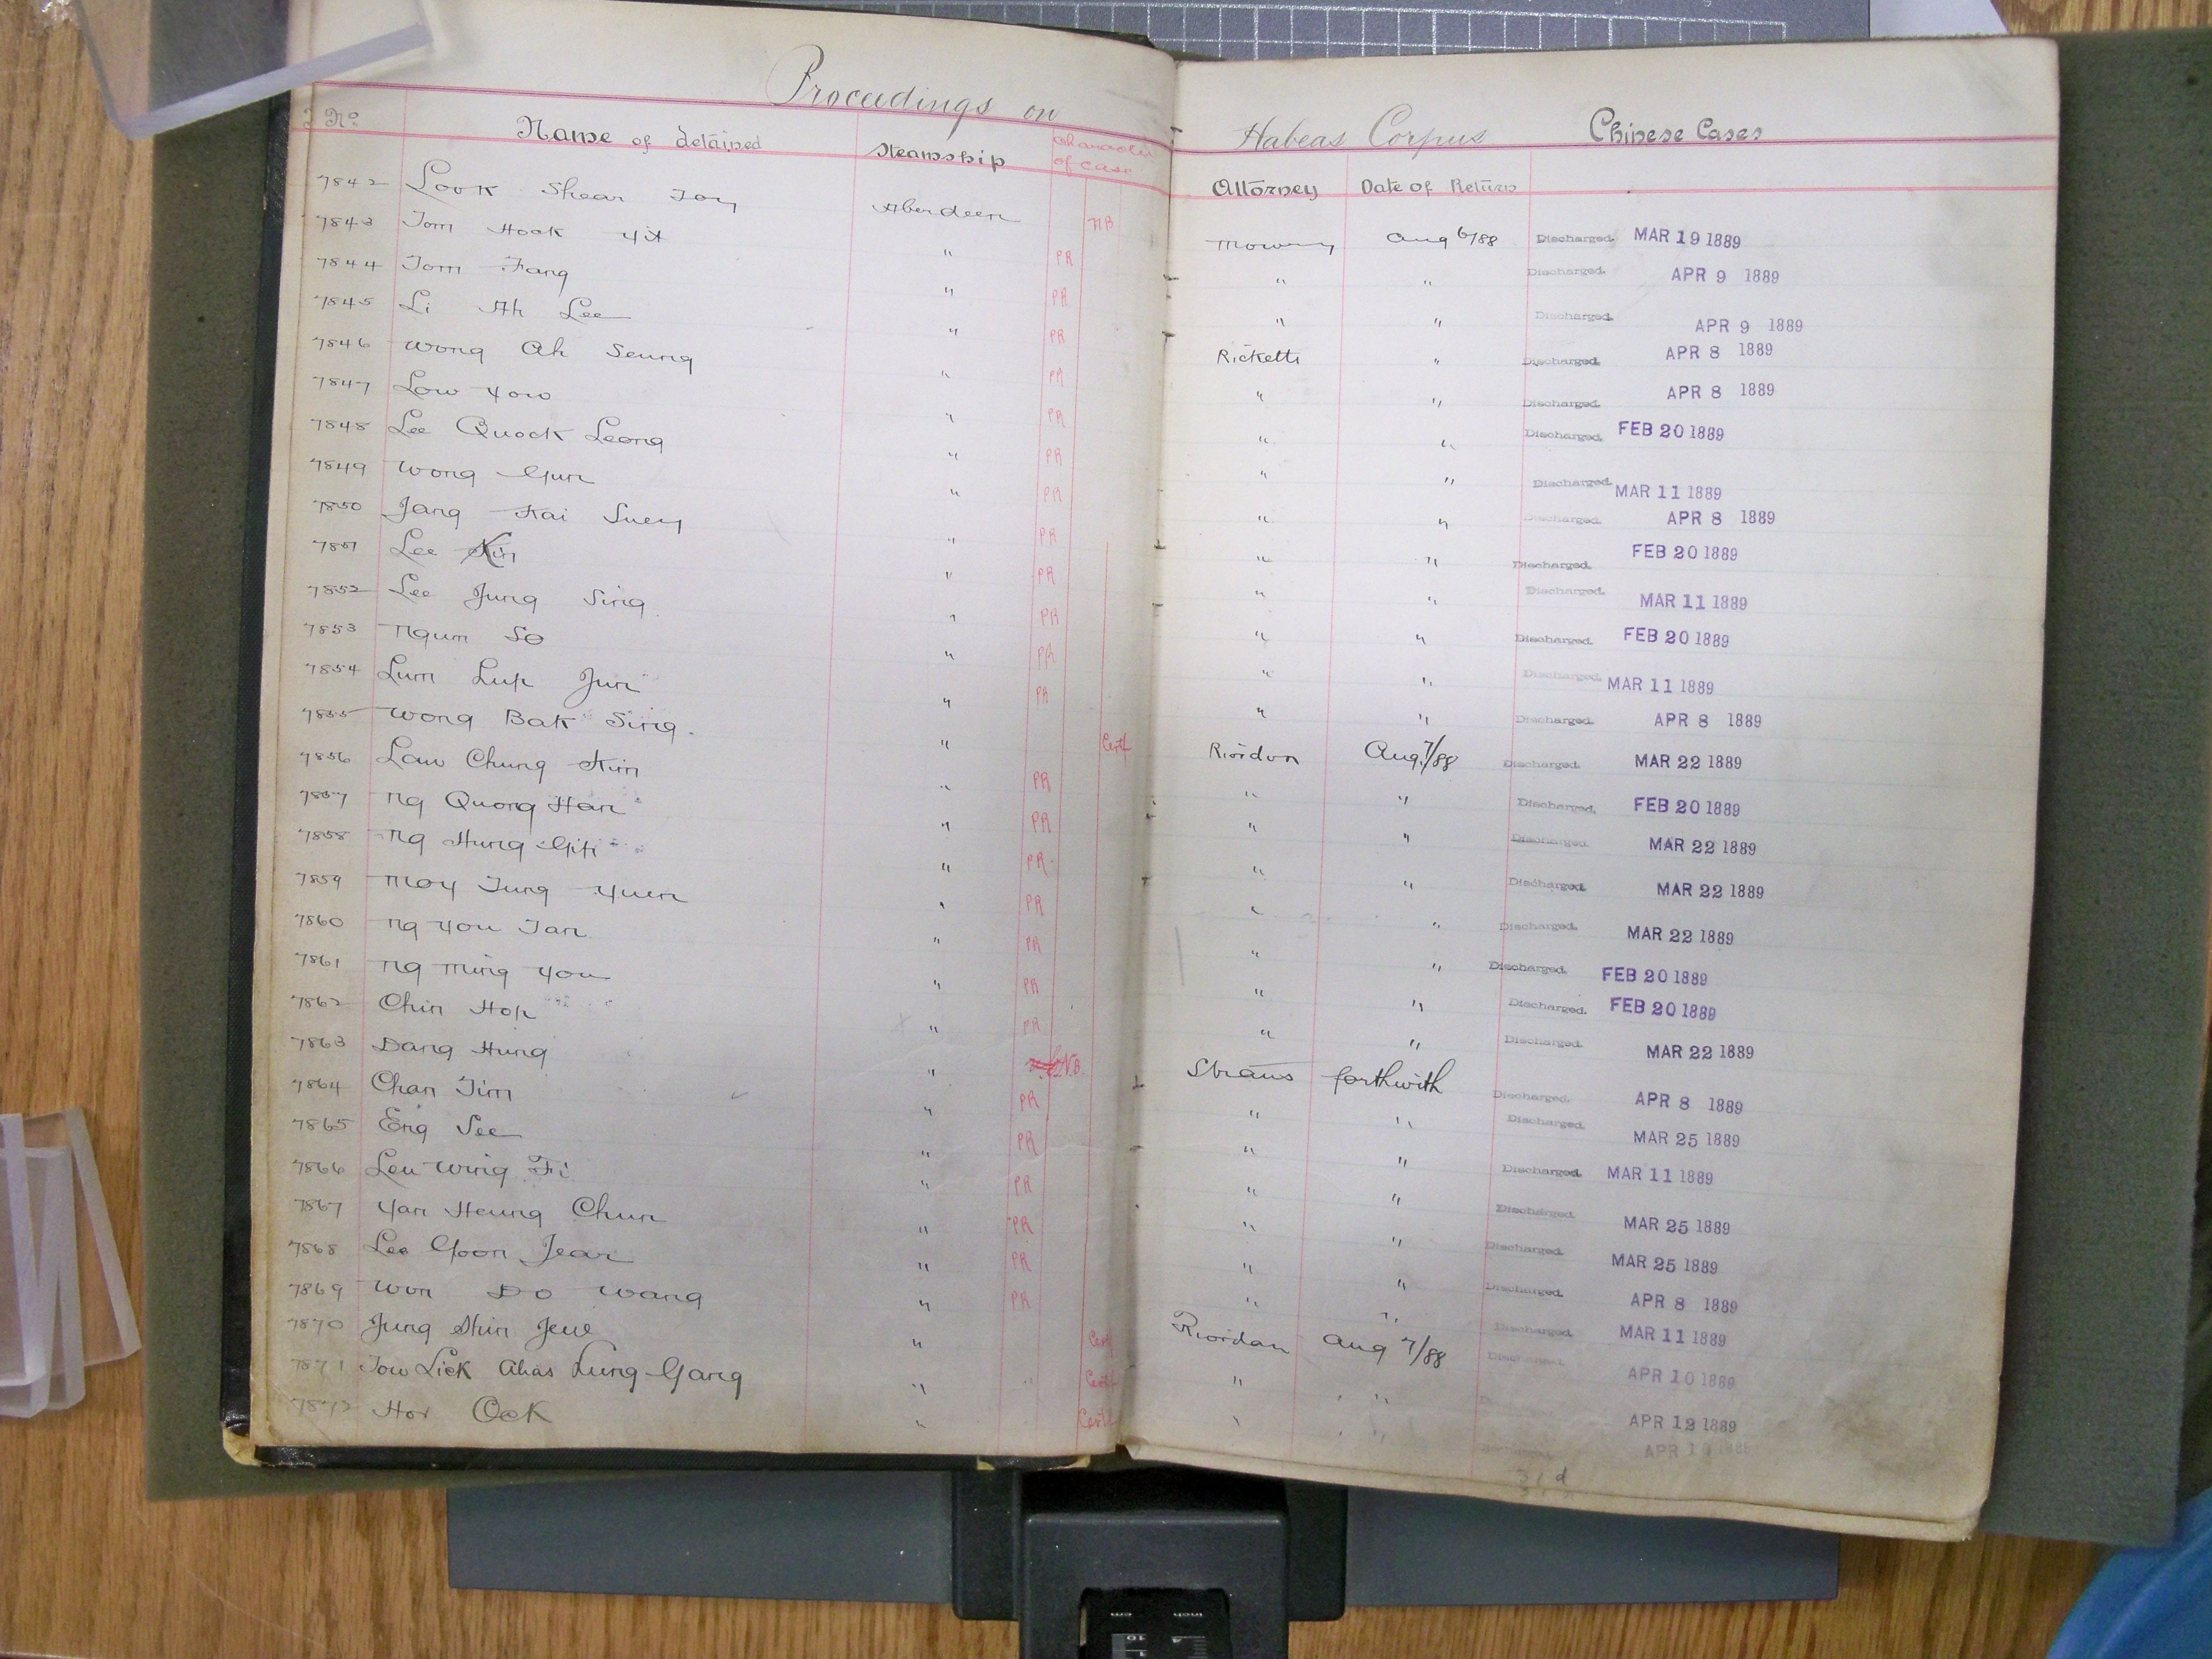 Proceedings on
No. Name of detained Steamship Character of case
7842 Look Shear Toy Aberdeen NB
7843 Tom Hock Yit " PR
7844 Tom Fang " PR
7845 Li Ah Lee " PR
7846 Wong Ah Seung " PR
7847 Low Yow " PR
7848 Lee Quock Leong " PR
7849 Wong Gun " PR
7850 Jang Kai Suey " PR
7851 Lee Kin " PR
7852 Lee Jung Sing " PR
7853 Ngum So " PR
7854 Lum Lup Jun " PR
7855 Wong Bak Sing. " Cert
7856 Law Chung Kim " PR
7857 Ng Quong Han " PR
7858 Ng Hung Gip " PR
7859 Moy Tung Yuen " PR
7860 Ng You Tan " PR
7861 Ng Ming You " PR
7862 Chin Hop " PR
7863 Dang Hung " N.B.
7864 Chan Tim " PR
7865 Eng See " PR
7866 Leu Wing Fi " PR
7867 Yan Heung Chun " PR
7868 Lee Goon Jear " PR
7869 Won Do Wang " PR
7870 Jung Shin Jew " Cert
7871 Tow Lick Alias Lung Gang " Cert
7872 Hor Ock " Cert
Habeas Corpus Chinese Cases
Attorney Date of Return
Mowry Aug 6/88 Discharged. MAR 19 1889
" " Discharged. APR 9 1889
" " Discharged. APR 9 1889
Ricketts " Discharged. APR 8 1889
" " Discharged. APR 8 1889
" " Discharged. FEB 20 1889
" " Discharged. MAR 11 1889
" " Discharged. APR 8 1889
" " Discharged. FEB 20 1889
" " Discharged. MAR 11 1889
" " Discharged. FEB 20 1889
" " Discharged. MAR 11 1889
" " Discharged. APR 8 1889
Riordan Aug 7/88 Discharged. MAR 22 1889
" " Discharged. FEB 20 1889
" " Discharged. MAR 22 1889
" " Discharged. MAR 22 1889
" " Discharged. MAR 22 1889
" " Discharged. FEB 20 1889
" " Discharged. FEB 20 1889
" " Discharged. MAR 22 1889
Straus forthwith Discharged. APR 8 1889
" " Discharged. MAR 25 1889
" " Discharged. MAR 11 1889
" " Discharged. MAR 25 1889
" " Discharged. MAR 25 1889
" " Discharged. APR 8 1889
" " Discharged. MAR 11 1889
Riordan Aug 7/88 Discharged. APR 10 1889
" " APR 12 1889
" " APR
31 d